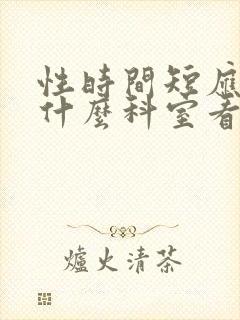 性時間短應
什麼科室看
爐火清茶